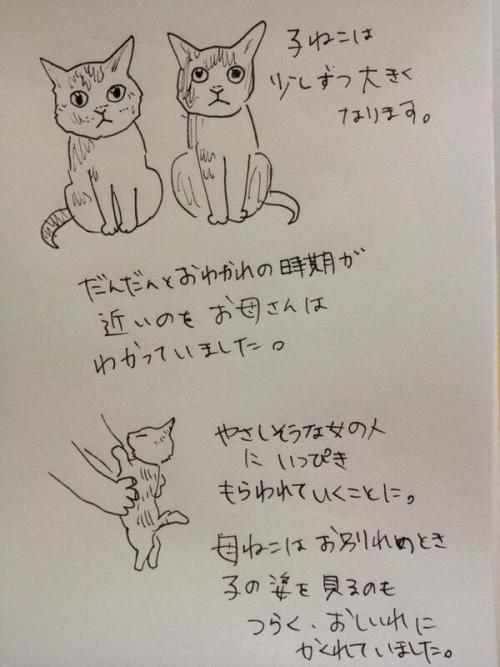 子ねこは
少しずつ大きく
なります。
だんだんとおわかれの時期が
近いのをお母さんは
わかっていました。
やさしそうな女の人
にいっぴき
もらわれていくことに。
母ねこはお別れのとき
子の姿を見るのも
つらく、おしいれに
かくれていました。